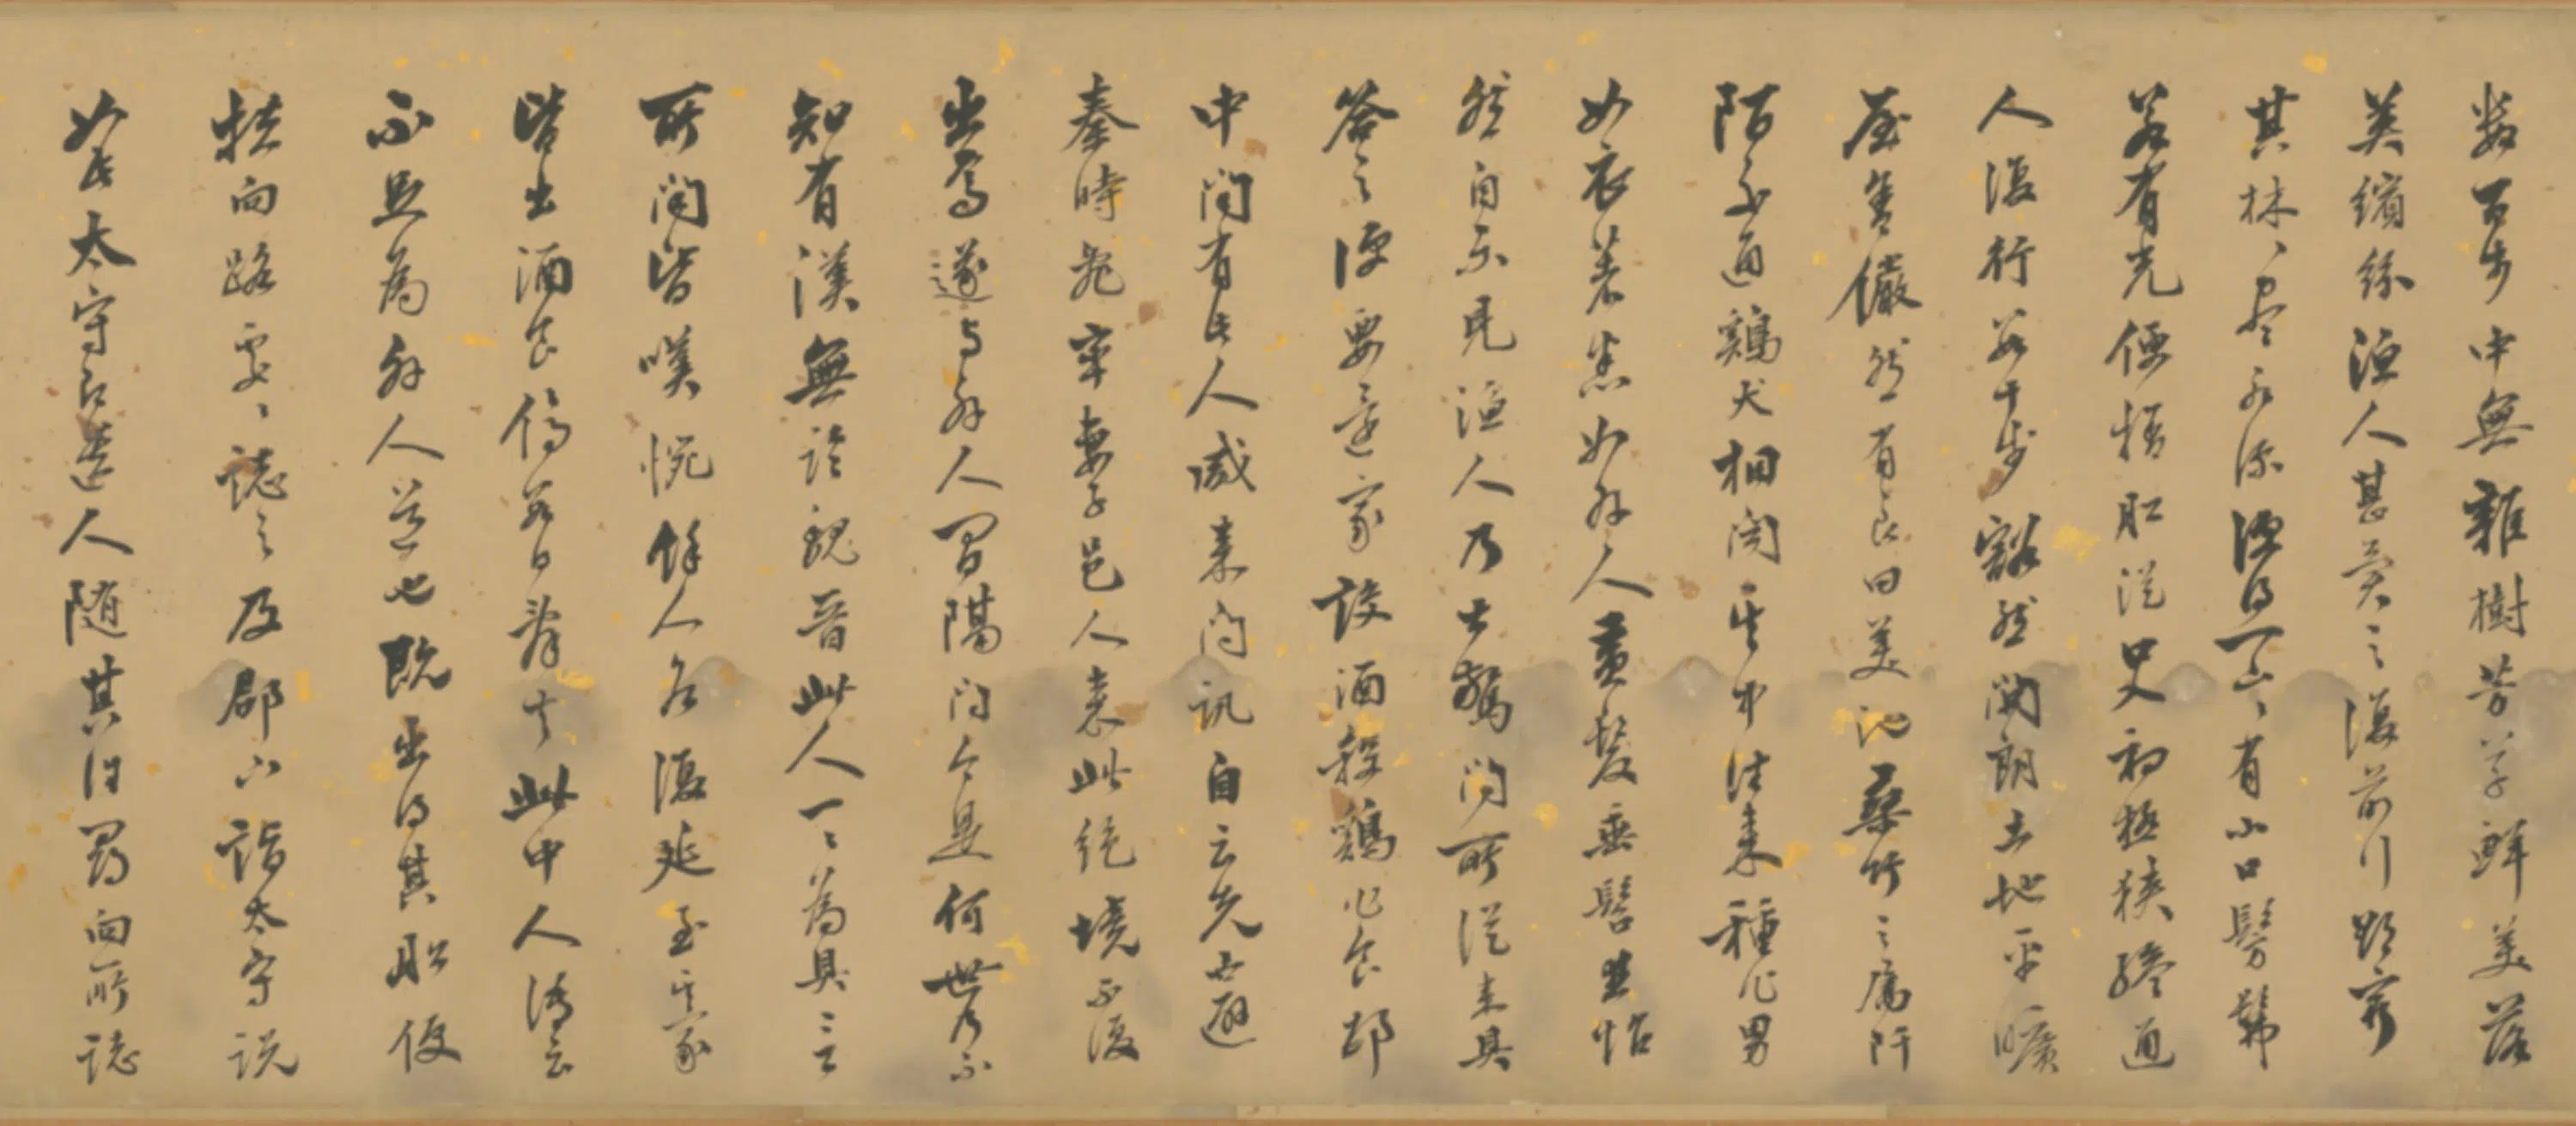 數百步中無雜樹芳草鮮美落
英繽紛漁人甚異之復前行欲窮
其林〻盡水源便得一山〻有小口髣髴
若有光便捨船從口入初極狹纔通
人復行數十步豁然開朗土地平曠
屋舍儼然有良田美池桑竹之屬阡
陌交通鷄犬相聞其中往來種作男
女衣著悉如外人黃髮垂髫並怡
然自樂見漁人乃大驚問所從來具
答之便要還家設酒殺鷄作食邨
中聞有此人咸來問訊自云先世避
秦時亂率妻子邑人來此絕境不復
出焉遂與外人間隔問今是何世乃不
知有漢無論魏晉此人一〻為具言
所聞皆嘆惋餘人各復延至其家
皆出酒食停數日辭去此中人語云
不足為外人道也既出得其船便
扶向路處〻誌之及郡下詣太守說
如此太守即遣人隨其往尋向所誌